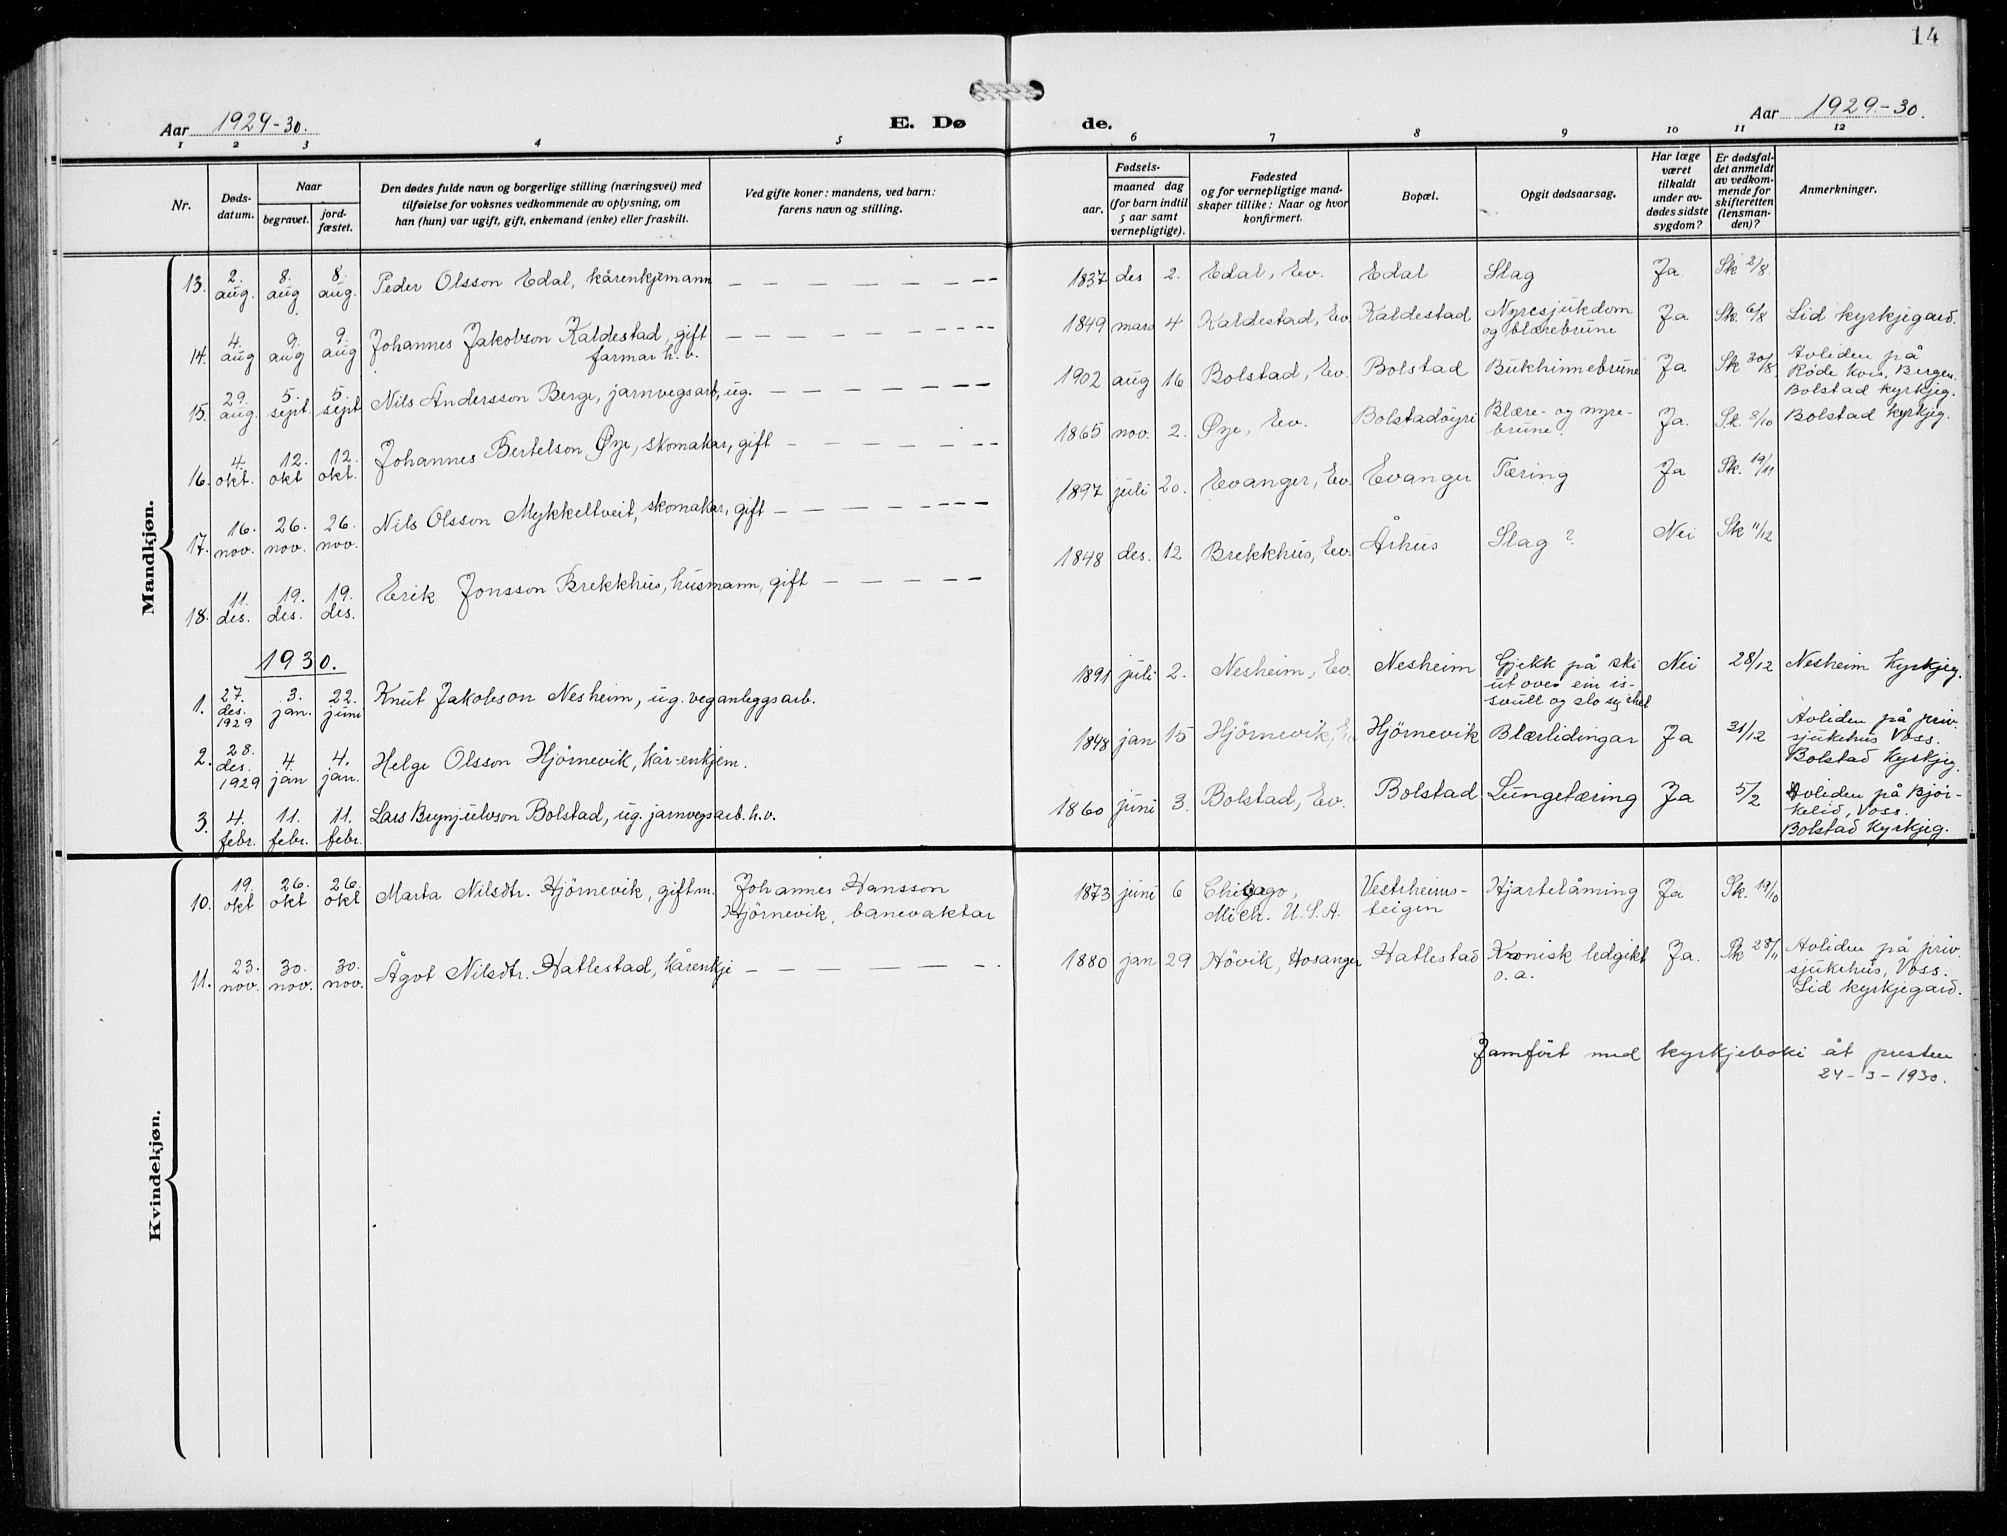 14
Aar 1929-30.
E. Dø
de.
Aar 1929-30.
1 2 3 4 5 6 7 8 9 10 11 12
Nr.
Døds-
datum.
Naar
begravet.
jord-
fæstet.
Den dødes fulde navn og borgerlige stilling (næringsvei) med
tilføielse for voksnes vedkommende av oplysning, om
han (hun) var ugift, gift, enkemand (enke) eller fraskilt.
Ved gifte koner: mandens, ved barn:
farens navn og stilling.
Fødsels-
aar.
maaned dag
(for barn indtil
5 aar samt
vernepligtige).
Fødested
og for vernepligtige mand-
skaper tillike: Naar og hvor
konfirmert.
Bopæl.
Opgit dødsaarsag.
Har læge
været
tilkaldt
under av-
dødes sidste
sygdom?
Er dødsfal-
det anmeldt
av vedkom-
mende for
skifteretten
(lensman-
den)?
Anmerkninger.
Mandkjøn.
13. 2. aug. 8. aug 8. aug. Peder Olsson Edal, kårenkjemann — — — — — — — 1837 des 2. Edal, Ev. Edal Slag Ja Sk 2/8
14. 4. aug 9. aug 9. aug Johannes Jakobson Kaldestad, gift — — — — — — — 1849 mars 4 Kaldestad, Ev Kaldestad Nyresjukdom Ja Sk. 6/8 Lid kyrkjegard.
farmar h.v.
og blærebrune
15. 29. aug. 5. sept. 5. sept Nils Andersson Berge, jarnvegsarb, ug. — — — — — — 1902 aug 16 Bolstad, Ev. Bolstad Bukhinnebrune Ja Sk 30/8 Avliden på
Røde Kors, Bergen.
Bolstad kyrkjeg.
16. 4. okt. 12. okt 12. okt. Johannes Bertelson Øye, skomakar, gift — — — — — — 1865 nov. 2. Øye, Ev. Bolstadøyri Blære- og nyre- Ja. Sk. 8/10 Bolstad kyrkjeg.
brune.
17. 16. nov. 26. nov. 26. nov. Nils Olsson Mykkeltveit, skomakar, gift — — — — — — 1897 juli 20. Evanger, Ev. Evanger Tæring Ja Sk. 19/11
18. 11. des. 19. des. 19. des. Erik Jonsson Brekkhus, husmann, gift — — — — — 1848 des. 12 Brekkhus, Ev. Århus Slag? Nei Sk 11/12
1930.
1. 27. des. 1929 3. jan. 22. juni Knut Jakobson Nesheim, ug. veganleggsarb. 1891 juli 2. Nesheim, Ev. Nesheim Gjekk på ski Nei 28/12 Nesheim Kyrkjeg.
ut over ein is-
svull og slo seg ihel
2. 28. des. 1929 4. jan 4. jan. Helge Olsson Hjørnevik, kår-enkjem. 1848 jan 15 Hjørnevik, Hjørnevik Blærlidingar Ja 31/12 Avliden på priv.
sjukehus Voss.
Bolstad Kyrkjeg.
3. 4. febr. 11. febr. 11. febr. Lars Brynjulvson Bolstad, ug. jarnvegsarb. h.v. 1860 juni 3. Bolstad, Ev. Bolstad Lungetæring Ja 5/2 Avliden på Bjør-
kelid, Voss.
Bolstad Kyrkjeg.
Kvindekjøn.
10. 19. okt 26. okt 26. okt Marta Nilsdtr. Hjørnevik, gift m. Johannes Hansson 1873 juni 6 Chicago, Vestrheims- Hjartelåming Ja Sk. 19/10
Hjørnevik, banevaktar Mich. U.S.A. teigen
11. 23. nov. 30. nov. 30. nov. Ågot Nilsdtr. Hatlestad, kårenkje — — — — — — . 1880 jan 29 Høvik, Hosanger Hatlestad Kronisk ledgikt Ja. Sk 28/11 Avliden på priv.
o.a. sjukehus, Voss.
Lid kyrkjegard.
Jamført med kyrkjeboki åt presten
24-3-1930.